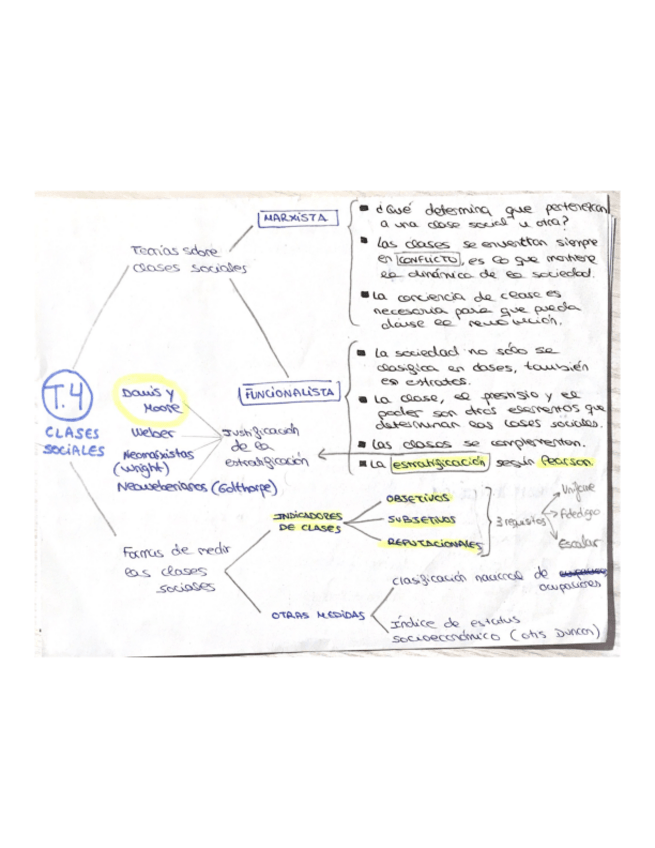 T.4
CLASES
SOCIALES
Teorías sobre
clases sociales
MARXISTA
■ ¿Qué determina que pertenezcan
a una clase social u otra?
■ Las clases se encuentran siempre
en CONFLICTO, es lo que mantiene
la dinámica de la sociedad.
■ La conciencia de clase es
necesaria para que pueda
darse la revolución.
FUNCIONALISTA
■ La sociedad no sólo se
clasifica en clases, también
en estratos.
■ La clase, el prestigio y el
poder son otros elementos que
determinan las clases sociales.
■ Las clases se complementan.
■ La estratificación según Pearson
Davis y
Moore
Weber
Neomarxistas
(Wright)
Neoweberianos (Golthorpe)
Justificación
de la
estratificación
Formas de medir
las clases
sociales
INDICADORES
DE CLASES
OBJETIVOS
SUBJETIVOS
REPUTACIONALES
3 requisitos
Fidedigno
Escalar
OTRAS MEDIDAS
Clasificación nacional de
ocupaciones
Índice de estatus
socioeconómico (Otis Duncan)